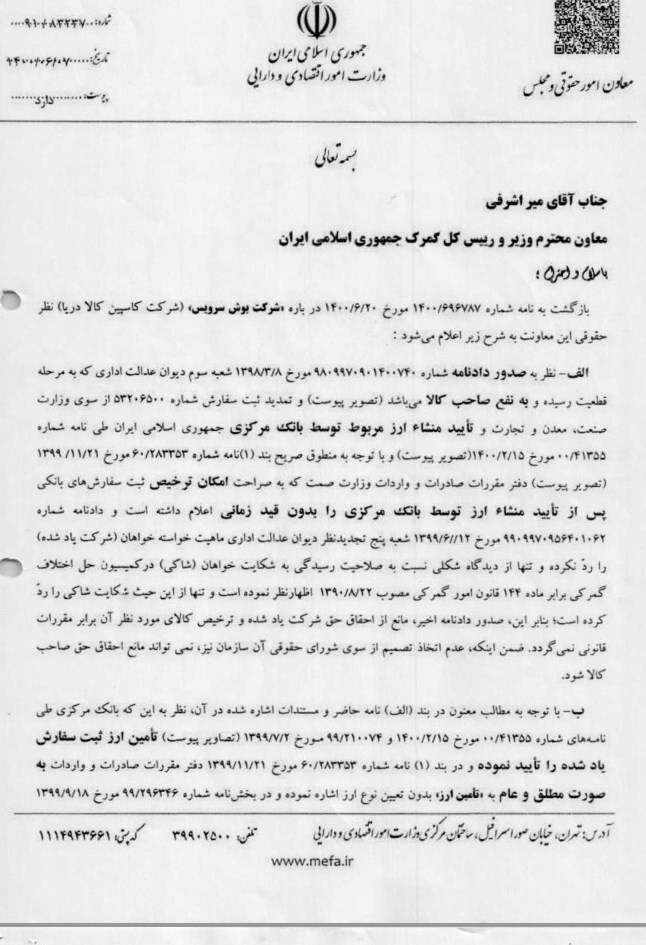 شماره: ۹۱/۸۳۲۳۷
تاریخ: ۱۴۰۰/۰۶/۰۷
پیوست: دارد
جمهوری اسلامی ایران
وزارت امور اقتصادی و دارایی
معاون امور حقوقی و مجلس
بسمه تعالی
جناب آقای میر اشرفی
معاون محترم وزیر و رییس کل گمرک جمهوری اسلامی ایران
با سلام و احترام ؛
بازگشت به نامه شماره ۱۴۰۰/۶۹۶۷۸۷ مورخ ۱۴۰۰/۶/۲۰ در باره «شرکت بوش سرویس» (شرکت کاسپین کالا دریا) نظر
حقوقی این معاونت به شرح زیر اعلام می‌شود :
الف- نظر به صدور دادنامه شماره ۹۸۰۹۹۷۰۹۰۱۴۰۰۷۴۰ مورخ ۱۳۹۸/۳/۸ شعبه سوم دیوان عدالت اداری که به مرحله
قطعیت رسیده و به نفع صاحب کالا می‌باشد (تصویر پیوست) و تمدید ثبت سفارش شماره ۵۳۲۰۶۵۰۰ از سوی وزارت
صنعت، معدن و تجارت و تأیید منشاء ارز مربوط توسط بانک مرکزی جمهوری اسلامی ایران طی نامه شماره
۰۰/۴۱۳۵۵ مورخ ۱۴۰۰/۲/۱۵(تصویر پیوست) و با توجه به منطوق صریح بند (۱)نامه شماره ۶۰/۲۸۳۳۵۳ مورخ ۱۳۹۹/۱۱/۲۱
(تصویر پیوست) دفتر مقررات صادرات و واردات وزارت صمت که به صراحت امکان ترخیص ثبت سفارش‌های بانکی
پس از تأیید منشاء ارز توسط بانک مرکزی را بدون قید زمانی اعلام داشته است و دادنامه شماره
۹۹۰۹۹۷۰۹۵۶۴۰۱۰۶۲ مورخ ۱۳۹۹/۶//۱۲ شعبه پنج تجدیدنظر دیوان عدالت اداری ماهیت خواسته خواهان (شرکت یاد شده)
را ردّ نکرده و تنها از دیدگاه شکلی نسبت به صلاحیت رسیدگی به شکایت خواهان (شاکی) درکمیسیون حل اختلاف
گمرکی برابر ماده ۱۴۴ قانون امور گمرکی مصوب ۱۳۹۰/۸/۲۲ اظهارنظر نموده است و تنها از این حیث شکایت شاکی را ردّ
کرده است؛ بنابر این، صدور دادنامه اخیر، مانع از احقاق حق شرکت یاد شده و ترخیص کالای مورد نظر آن برابر مقررات
قانونی نمی‌گردد. ضمن اینکه، عدم اتخاذ تصمیم از سوی شورای حقوقی آن سازمان نیز، نمی تواند مانع احقاق حق صاحب
کالا شود.
ب- با توجه به مطالب معنون در بند (الف) نامه حاضر و مستندات اشاره شده در آن، نظر به این که بانک مرکزی طی
نامه‌های شماره ۰۰/۴۱۳۵۵ مورخ ۱۴۰۰/۲/۱۵ و ۹۹/۲۱۰۰۷۴ مورخ ۱۳۹۹/۷/۲ (تصاویر پیوست) تأمین ارز ثبت سفارش
یاد شده را تأیید نموده و در بند (۱) نامه شماره ۶۰/۲۸۳۳۵۳ مورخ ۱۳۹۹/۱۱/۲۱ دفتر مقررات صادرات و واردات به
صورت مطلق و عام به «تأمین ارز» بدون تعیین نوع ارز اشاره نموده و در بخش‌نامه شماره ۹۹/۲۹۶۳۴۶ مورخ ۱۳۹۹/۹/۱۸
آدرس: تهران، خیابان صور اسرافیل، ساختمان مرکزی وزارت امور اقتصادی و دارایی تلفن: ۳۹۹۰۲۵۰۰ کد پستی: ۱۱۱۴۹۴۳۶۶۱
www.mefa.ir